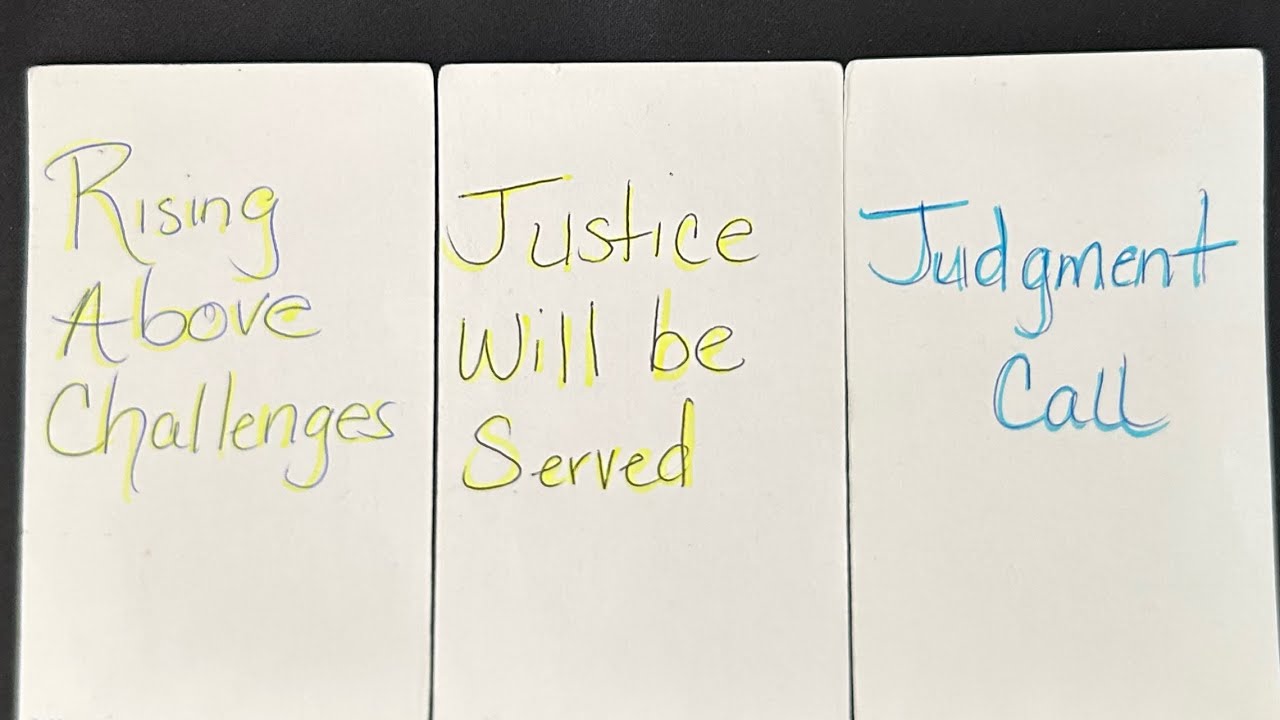 Rising
Above
Challenges
Justice
Will be
Served
Judgment
Call